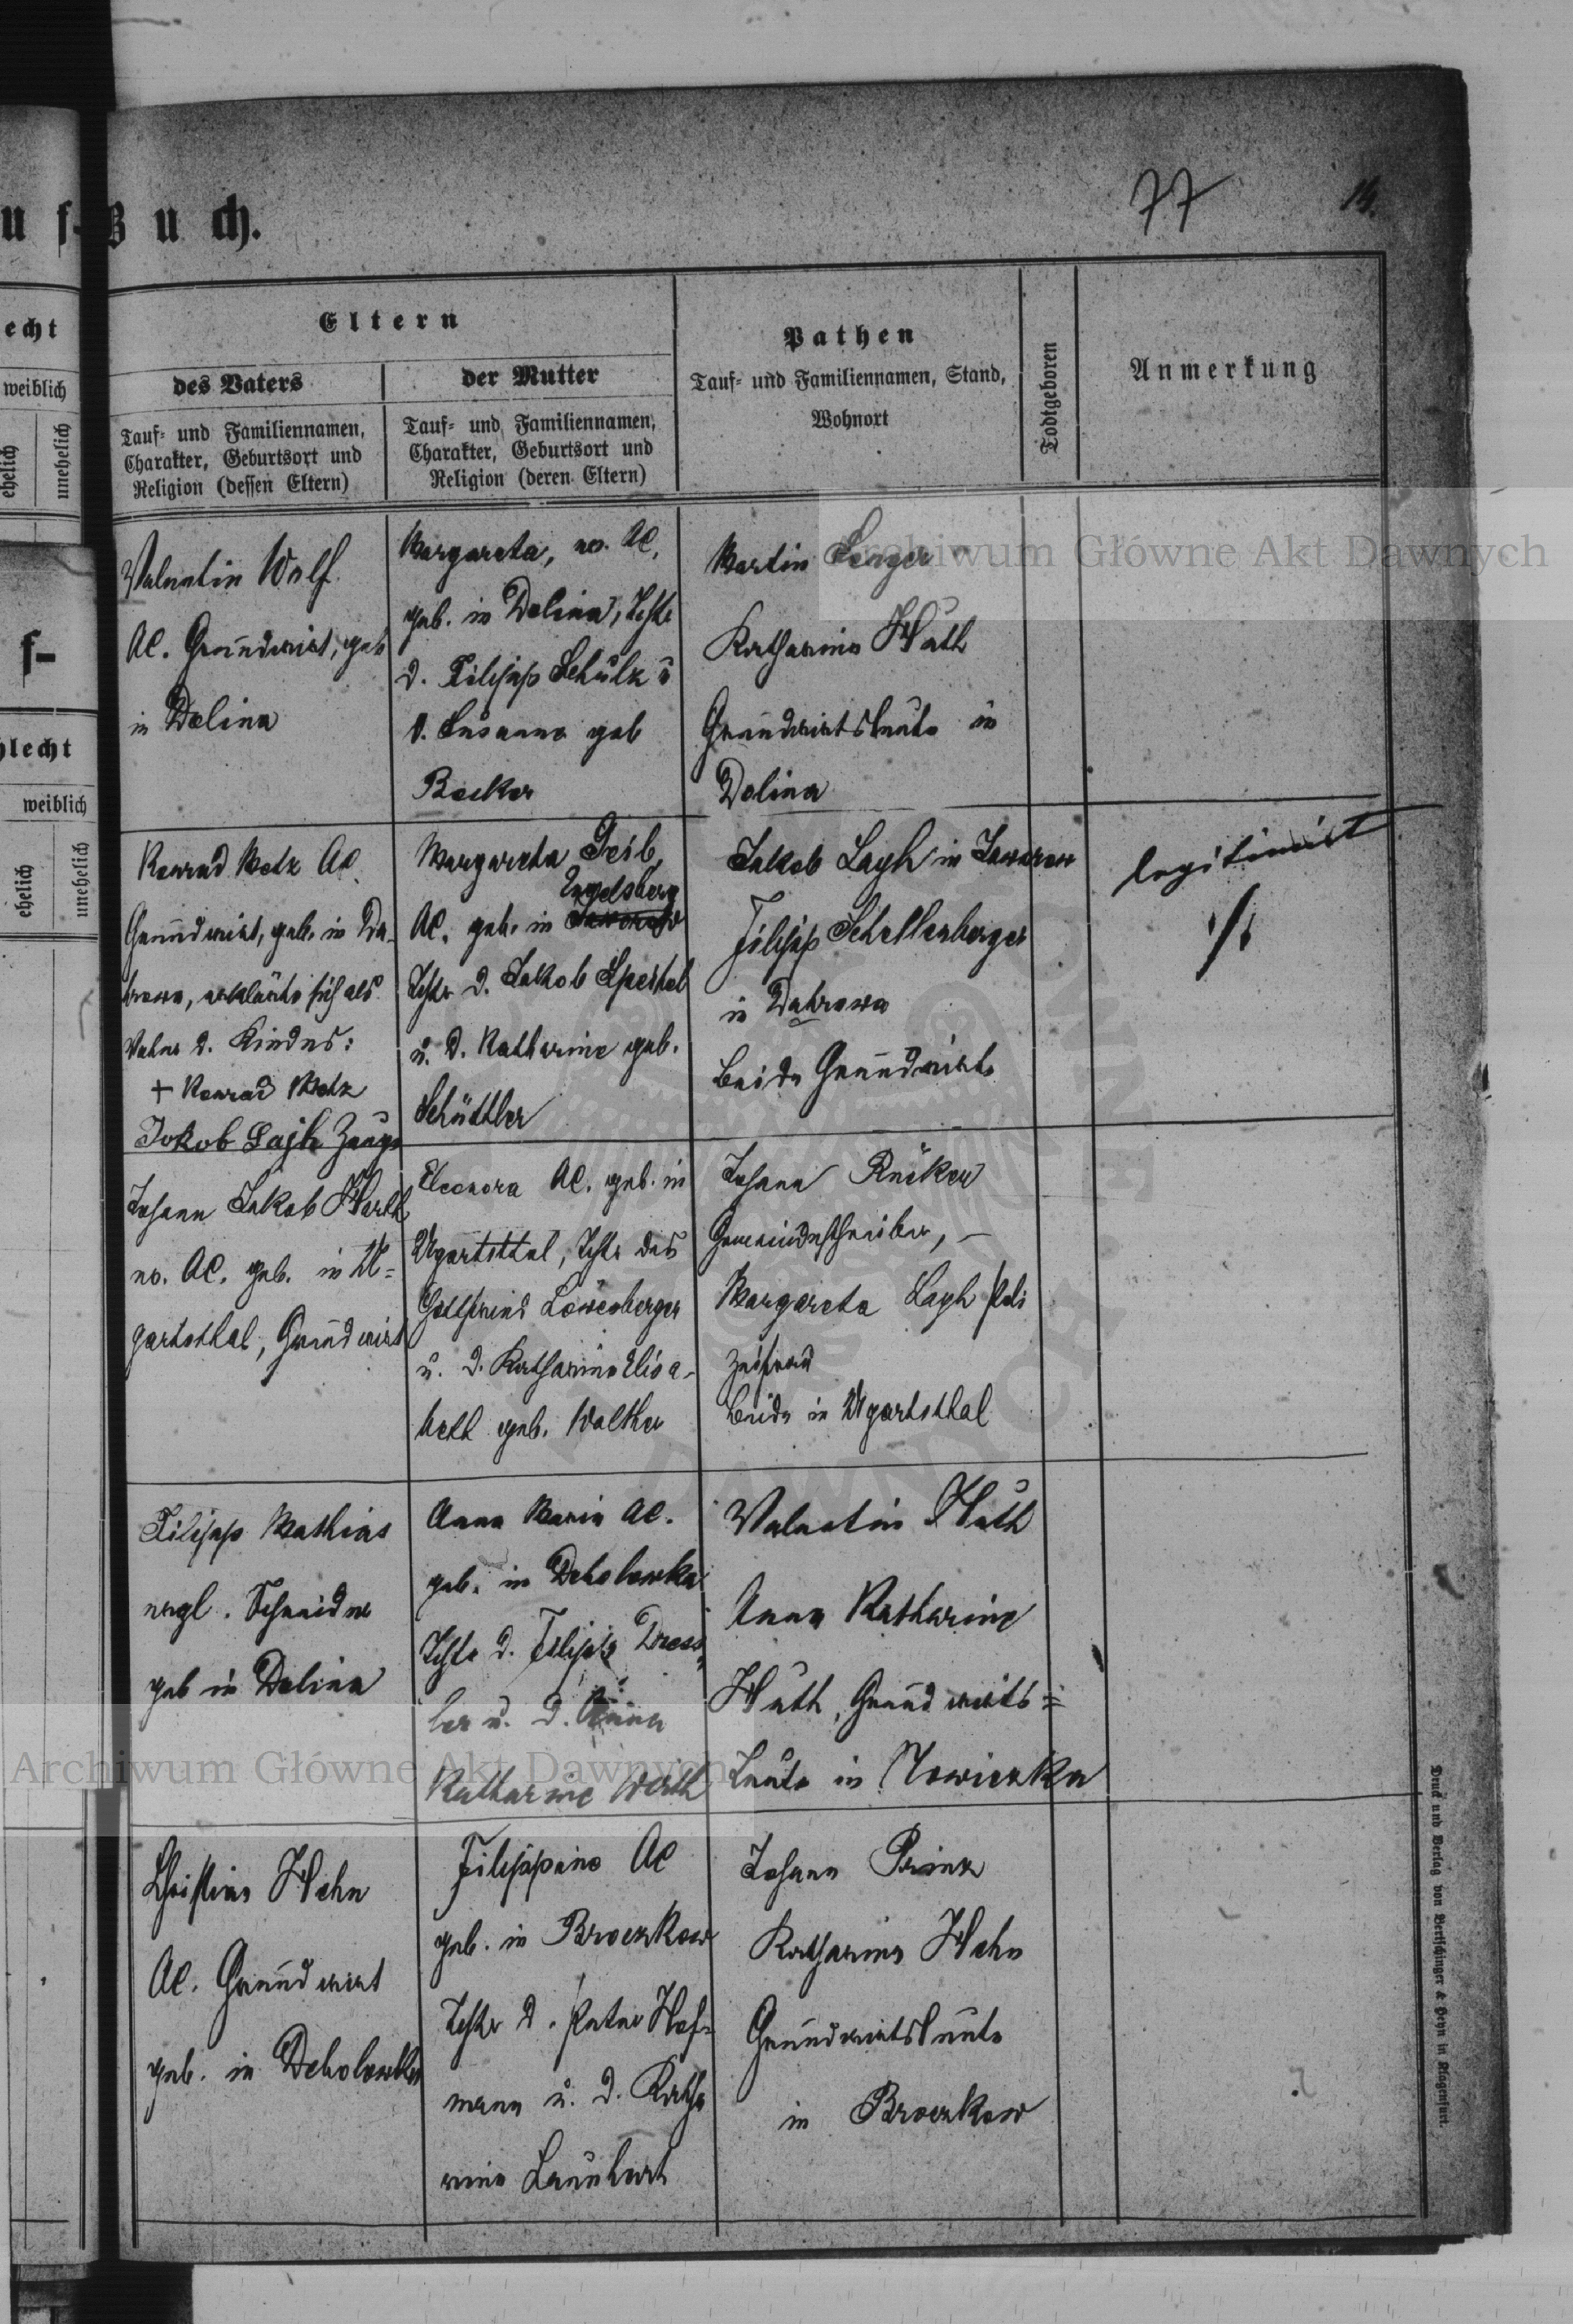 uf-Buch.
77
14.
echt
weiblich
ehelich
unehelich
f-
hlecht
weiblich
ehelich
unehelich
Eltern
des Vaters
der Mutter
Tauf- und Familiennamen,
Charakter, Geburtsort und
Religion (dessen Eltern)
Tauf- und Familiennamen,
Charakter, Geburtsort und
Religion (deren Eltern)
Pathen
Tauf- und Familiennamen, Stand,
Wohnort
Todtgeboren
Anmerkung
Valentin Wolf
AC. Grundwirt, geb
in Dolina
Margareta, ev. AC,
geb. in Dolina, Tchtr
d. Filipp Schulz u
d. Susanna geb
Becker
Martin Senger
Katharina Huth
Grundwirtsleute in
Dolina
Konrad Metz AC
Grundwirt, geb. in Da-
browa, erklärte sich als
Vater d. Kindes:
+ Konrad Metz
Jokob Lajh Zeuge
Margareta Geib,
Engelsberg
AC. geb. in Jaworow
Tchtr d. Jakob
u. d. Katharine geb.
Schüttler
Jakob Layh in Jaworow
Filipp Schellenberger
in Dabrowa
beide Grundwirte
legitimiert
./.
Johann Jakob Harth
ev. AC. geb. in U=
gartsthal, Grundwirt
Eleonora AC. geb. in
Ugartsthal, Tchtr des
Gottfried Löwenberger
u. d. Katharina Elisa-
beth geb. Walther
Johann Rücker
Gemeindeschreiber, –
Margareta Layh Poli
zeifrau
beide in Ugartsthal
Filipp Mathias
evgl. Schneider
geb in Dolina
Anna Maria AC.
geb. in Debolowka
Tchtr d. Filipp Dress-
ler u. d. Anna
Katharine Werth
Valentin Huth
Anna Katharine
Huth, Grundwirts=
Leute in Nowiczka
Christian Hahn
AC. Grundwirt
geb. in Debolowka
Filippine AC
geb. in Broczkow
Tchtr d. Peter Hof-
mann u. d. Katha
rina Launhart
Johann Prinz
Katharina Hahn
Grundwirtsleute
in Broczkow
Druck und Verlag von Bertschinger & Heyn in Klagenfurt.
Archiwum Główne Akt Dawnych
Archiwum Główne Akt Dawnych